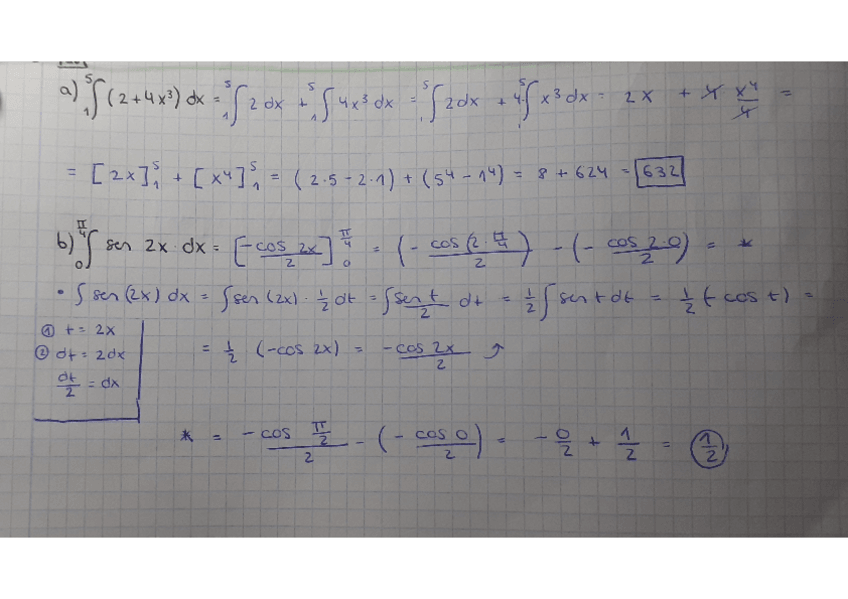 a) ₁∫⁵ (2+4x³) dx = ₁∫⁵ 2 dx + ₁∫⁵ 4x³ dx = ₁∫⁵ 2dx + 4 ₁∫⁵ x³ dx = 2x + 4 x⁴/4 =
= [2x]₁⁵ + [x⁴]₁⁵ = (2·5 - 2·1) + (5⁴ - 1⁴) = 8 + 624 = 632
b) ₀∫^(π/4) sen 2x · dx = [-cos 2x / 2]₀^(π/4) = (- cos(2·π/4) / 2) - (- cos 2·0 / 2) = *
• ∫ sen (2x) dx = ∫ sen (2x) · 1/2 dt = ∫ sen t / 2 dt = 1/2 ∫ sen t dt = 1/2 (-cos t) =
① t = 2x
② dt = 2dx
dt/2 = dx
= 1/2 (-cos 2x) = -cos 2x / 2 ↗
* = -cos π/2 / 2 - (- cos 0 / 2) = - 0/2 + 1/2 = 1/2